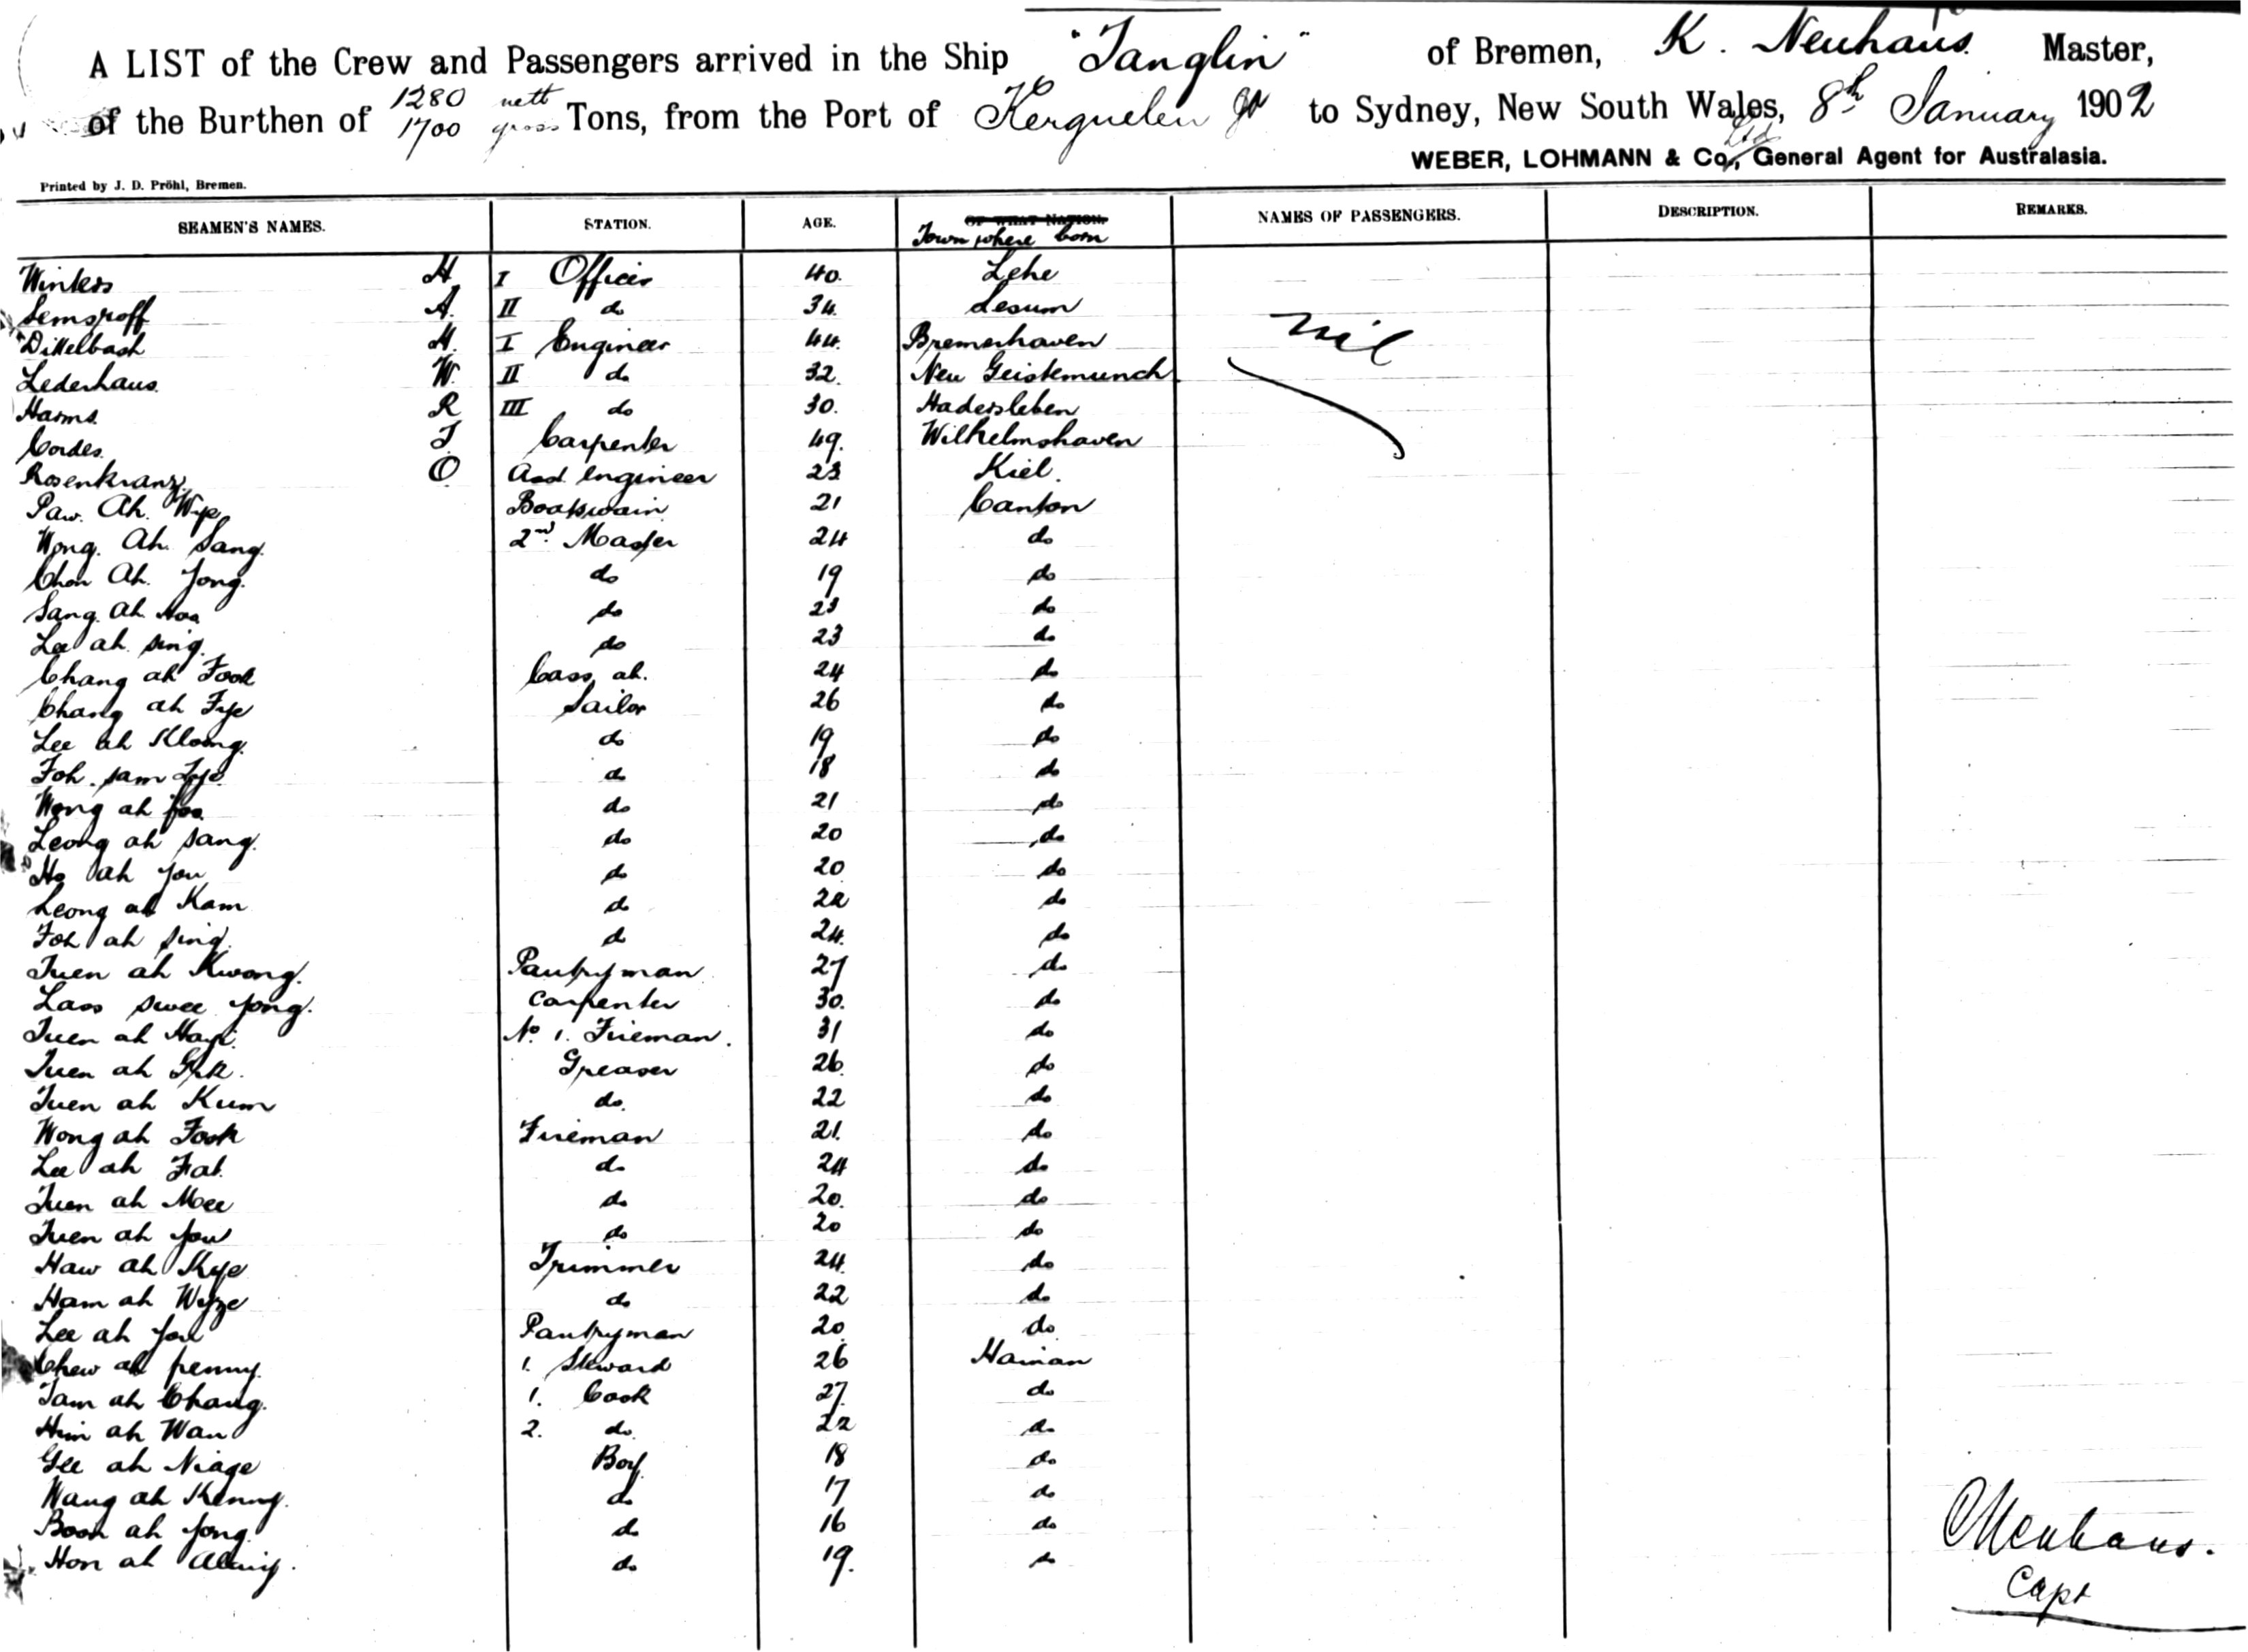 A LIST of the Crew and Passengers arrived in the Ship "Tanglin" of Bremen, K. Neuhaus Master,
of the Burthen of 1280 nett 1700 gross Tons, from the Port of Kerguelen to Sydney, New South Wales, 8th January 1902
WEBER, LOHMANN & Co., Ltd General Agent for Australasia.
Printed by J. D. Pröhl, Bremen.
SEAMEN'S NAMES. STATION. AGE. OF WHAT NATION. NAMES OF PASSENGERS. DESCRIPTION. REMARKS.
Town where born
Winters H I Officer 40. Lehe
A. II do 34. Lesum
Nil
H. I Engineer 44. Bremerhaven
Lederhaus W. II do 32. Neu
Harms R III do 30. Hadersleben
Cordes J. Carpenter 49. Wilhelmshaven
Rosenkranz O Asst Engineer 23 Kiel.
Paw. Ah. Boatswain 21 Canton
Wong. Ah. Sang. 2nd Master 24 do
Chon Ah. Yong. do 19 do
Sang. Ah do 23 do
Lee ah sing. do 23 do
Chang ah Fook Cass ab. 24 do
Chang ah Fye Sailor 26 do
Lee ah do 19 do
Foh. sam do 18 do
Wong ah foo do 21 do
Leong ah sang. do 20 do
Ho ah you do 20 do
Leong ah Kam do 22 do
Foh ah sing. do 24. do
Juen ah Kwong. Pantryman 27 do
Lass swee yong. Carpenter 30. do
Juen ah No 1. Fireman. 31 do
Juen ah Greaser 26. do
Juen ah Kum do. 22 do
Wong ah Fook Fireman 21. do
Lee ah Fat. do 24 do
Juen ah Mee do 20. do
Juen ah you do 20 do
Haw ah Kye Trimmer 24. do
Ham ah Wyze do 22 do
Lee ah you Pantryman 20. do
Chew ah penny. 1. Steward 26 Hainan
Tam ah Chang. 1. Cook 27. do
Him ah Wan 2. do. 22 do
Gee ah Niage Boy 18 do
Wang ah Kenny. do 17 do
Boon ah yong. do 16 do
Hon ah do 19. do
Neuhaus.
Capt